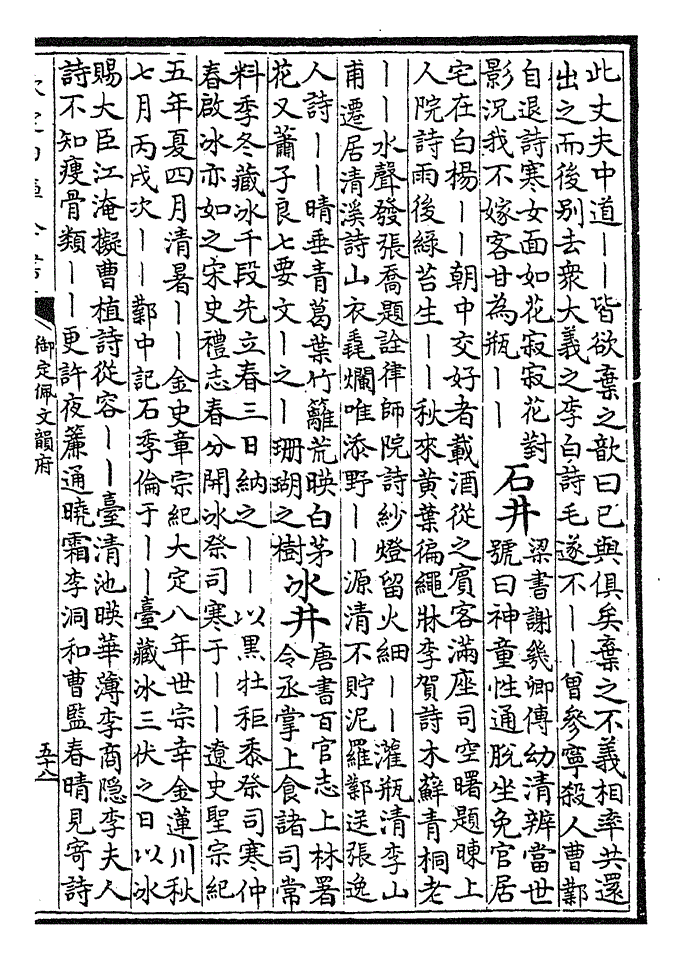 此丈夫中道丨丨皆欲棄之歆曰已與俱矣棄之不義相率共還
出之而後别去衆大義之李白詩毛遂不丨丨曾參寧殺人曹鄴
自退詩寒女面如花寂寂花對
影況我不嫁客甘為瓶丨丨
石井
梁書謝幾卿傳幼清辨當世
號曰神童性通脫坐免官居
宅在白楊丨丨朝中交好者載酒從之賓客滿座司空曙題暕上
人院詩雨後綠苔生丨丨秋來黃葉徧繩牀李賀詩木蘚青桐老
丨丨水聲發張喬題詮律師院詩紗燈留火細丨丨灌瓶清李山
甫遷居清溪詩山衣毳爛唯添野丨丨源清不貯泥羅鄴送張逸
人詩丨丨晴垂青葛葉竹籬荒映白茅
花又蕭子良七要文丨之丨珊瑚之樹
冰井
唐書百官志上林署
令丞掌上食諸司常
料季冬藏冰千段先立春三日納之丨丨以黑牡秬黍祭司寒仲
春啟冰亦如之宋史禮志春分開冰祭司寒于丨丨遼史聖宗紀
五年夏四月清暑丨丨金史章宗紀大定八年世宗幸金蓮川秋
七月丙戌次丨丨鄴中記石季倫于丨丨臺藏冰三伏之日以冰
賜大臣江淹擬曹植詩從容丨丨臺清池映華薄李商隱李夫人
詩不知瘦骨類丨丨更許夜簾通曉霜李洞和曹監春晴見寄詩
御定佩文韻府
五十八